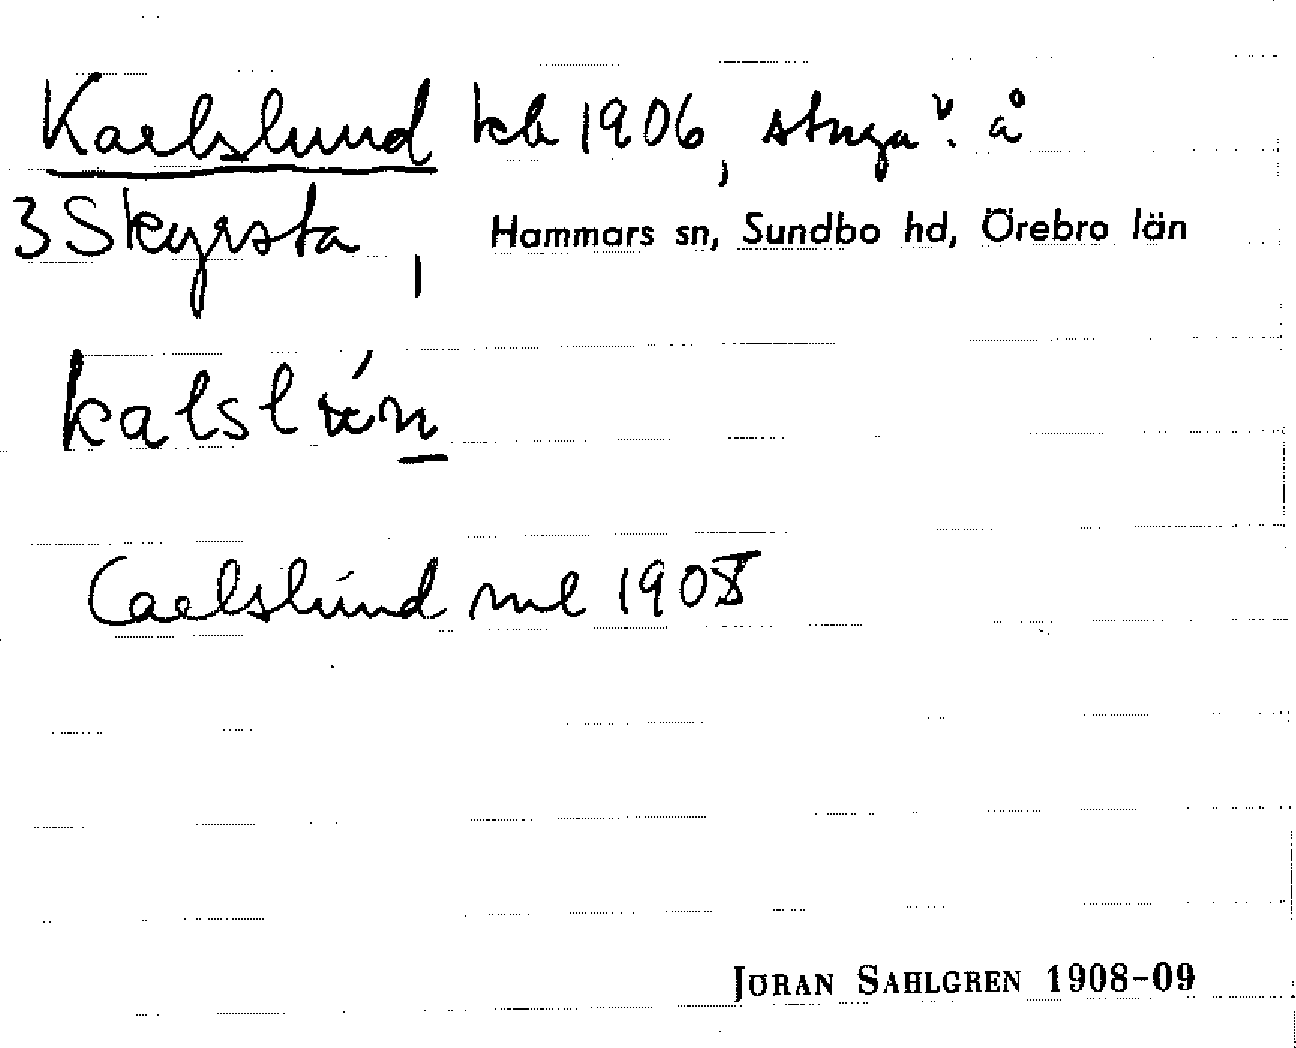 Karlslund kb 1906, stuga v. å
3 Skyrsta, Hammars sn, Sundbo hd, Örebro län
Carlslund ml 1908
JÖRAN SAHLGREN 1908-09